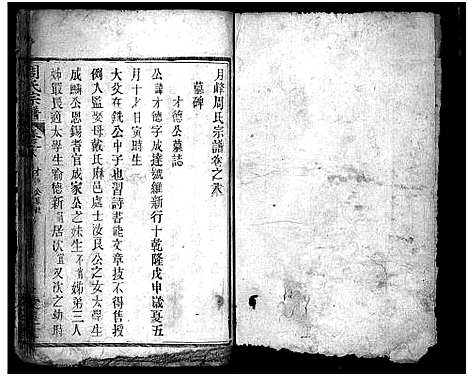 月峰周氏宗譜卷之
墓碑
才德公墓誌
公諱才德字成達號維新行十乾隆戊申歲夏五
月十九日寅時生
大父在鈗公中子也習詩書能文章技不得售授
例入監娶母戴氏麻邑處士汝良公之女太學生
成麟公恩錫耆官成家公之妹生不肖姊弟三人
姊最長適太學生喻德新居次又次之幼
周氏宗譜